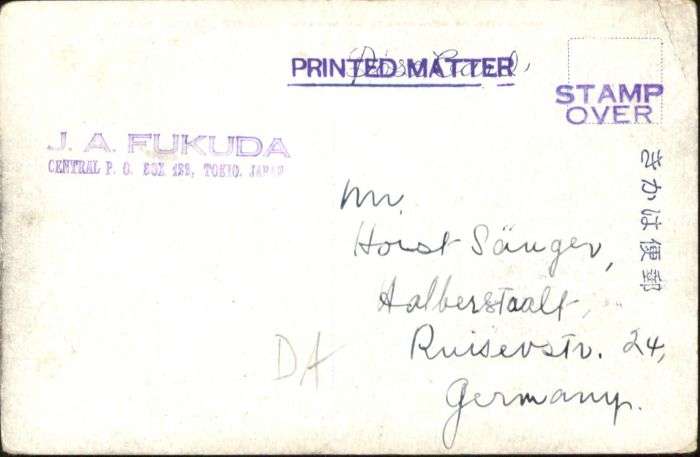 PRINTED MATTER
Post Card,
STAMP
OVER
J. A. FUKUDA
CENTRAL P. O. BOX 122, TOKIO. JAPAN
きかは便郵
Mr.
Horst Sänger,
Halberstadt,
Ruiserstr. 24,
Germany.
DA